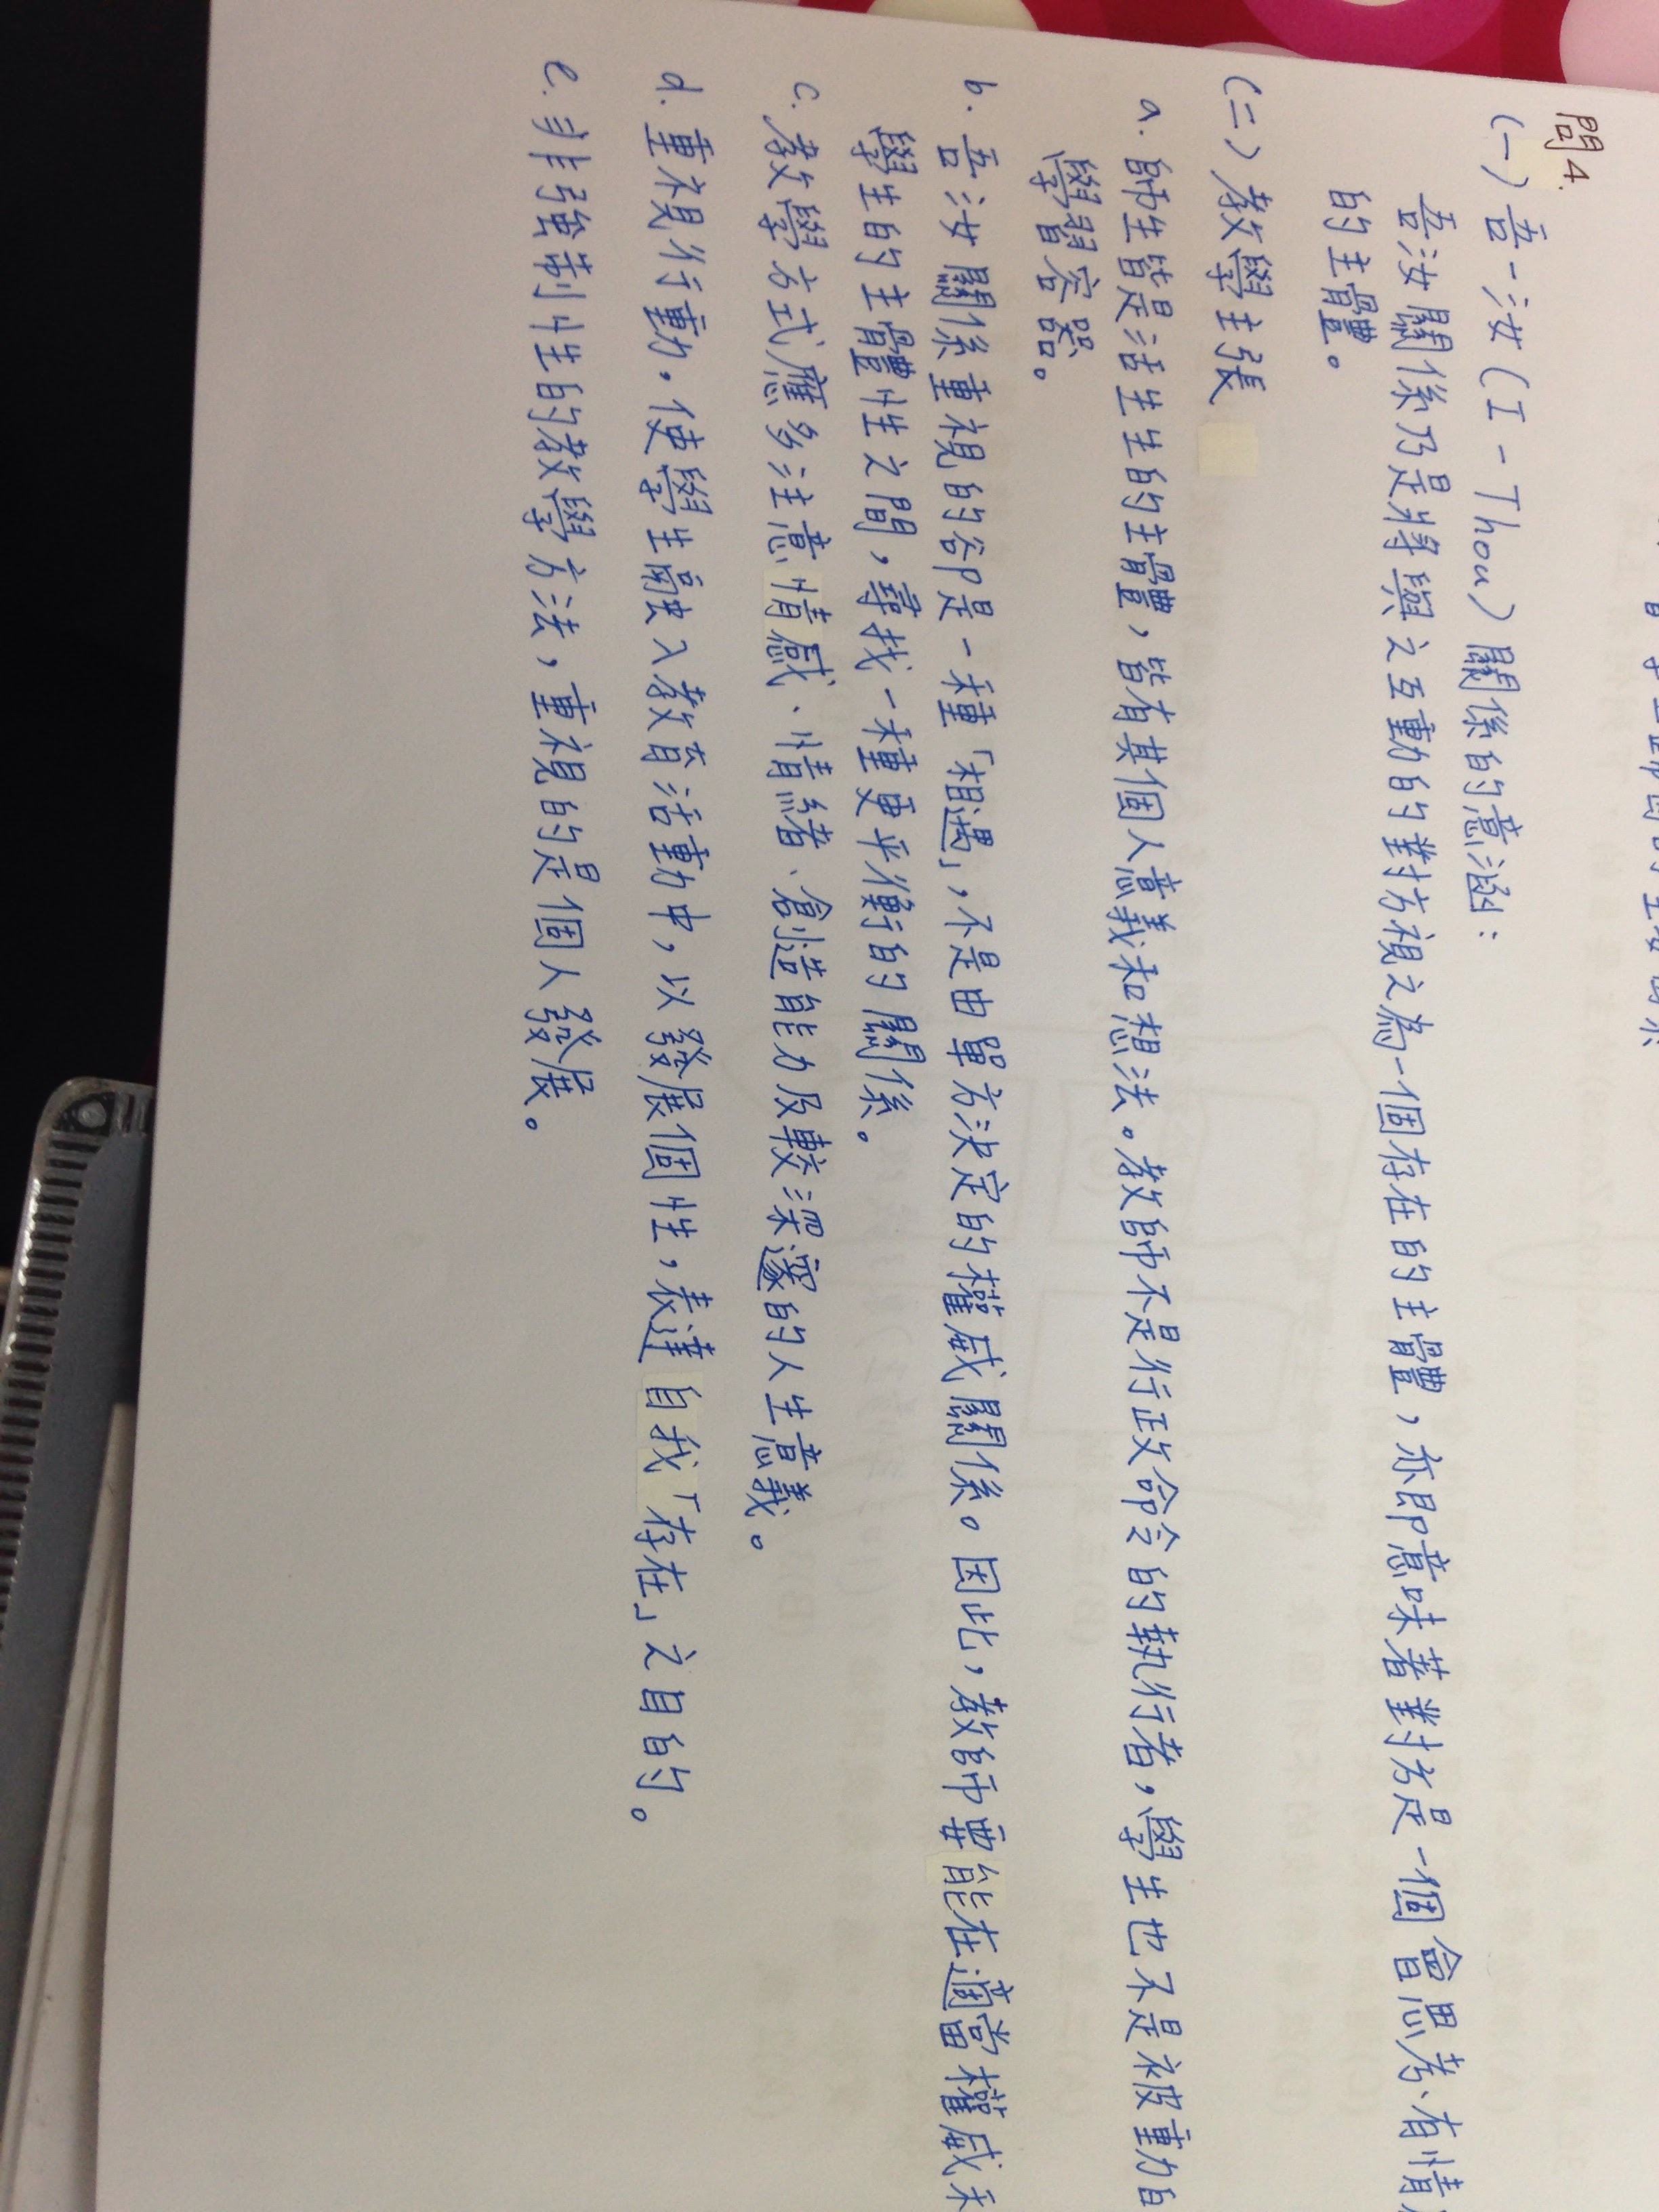 問4.
(一)吾-汝(I-Thou)關係的意涵:
吾汝關係乃是將與之互動的對方視之為一個存在的主體,亦即意味著對方是一個會思考、有情
的主體。
(二)教學主張
a. 師生皆是活生生的主體,皆有其個人意義和想法。教師不是行政命令的執行者,學生也不是被動的
學習容器。
b. 吾汝關係重視的卻是一種「相遇」,不是由單方決定的權威關係。因此,教師要能在適當權威和
學生的主體性之間,尋找一種更平衡的關係。
c. 教學方式應多注意情感、情緒、創造能力及較深邃的人生意義。
d. 重視行動,使學生融入教育活動中,以發展個性,表達自我「存在」之目的。
e. 非強制性的教學方法,重視的是個人發展。